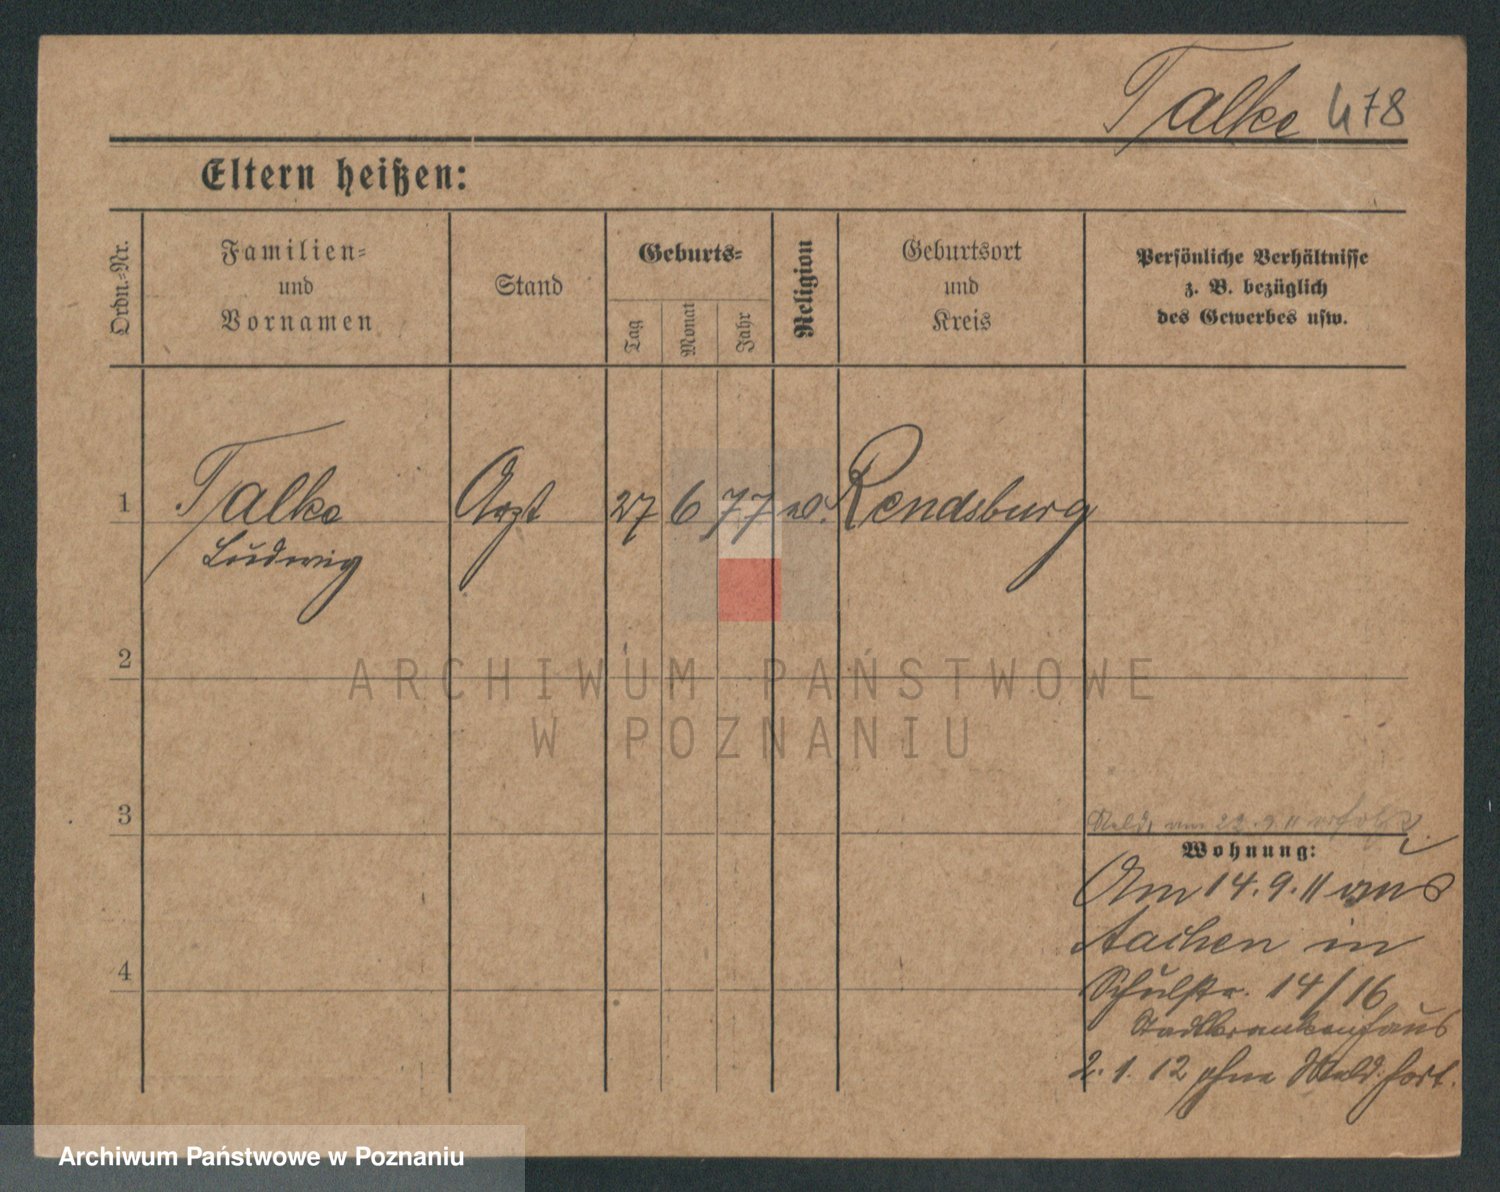 Talke 478
Eltern heißen:
Ordn.-Nr.
Familien-
und
Vornamen
Stand
Geburts-
Tag
Monat
Jahr
Religion
Geburtsort
und
Kreis
Persönliche Verhältnisse
z. B. bezüglich
des Gewerbes usw.
1 Talke Arzt 27 6 77 ev. Rendsburg
Ludwig
2
ARCHIWUM PAŃSTWOWE
W POZNANIU
3
Meld. am 22.9.11 erfolgt.
Wohnung:
Am 14.9.11 aus
Aachen in
4
Schulstr. 14/16
Stadtkrankenhaus
2.1.12 ohne Meld. fort.
Archiwum Państwowe w Poznaniu